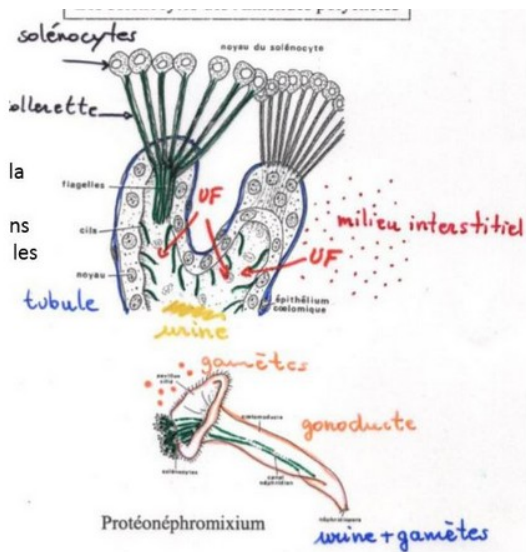 solénocytes
noyau du solénocyte
ollerette
la
flagelles
UF
ns
cils
les
milieu interstitiel
UF
noyau
tubule
épithélium
cœlomique
urine
gamètes
pavillon
cilié
cœlomoducte
gonoducte
solénocytes
canal
néphridien
néphridiopore
Protéonéphromixium
urine + gamètes